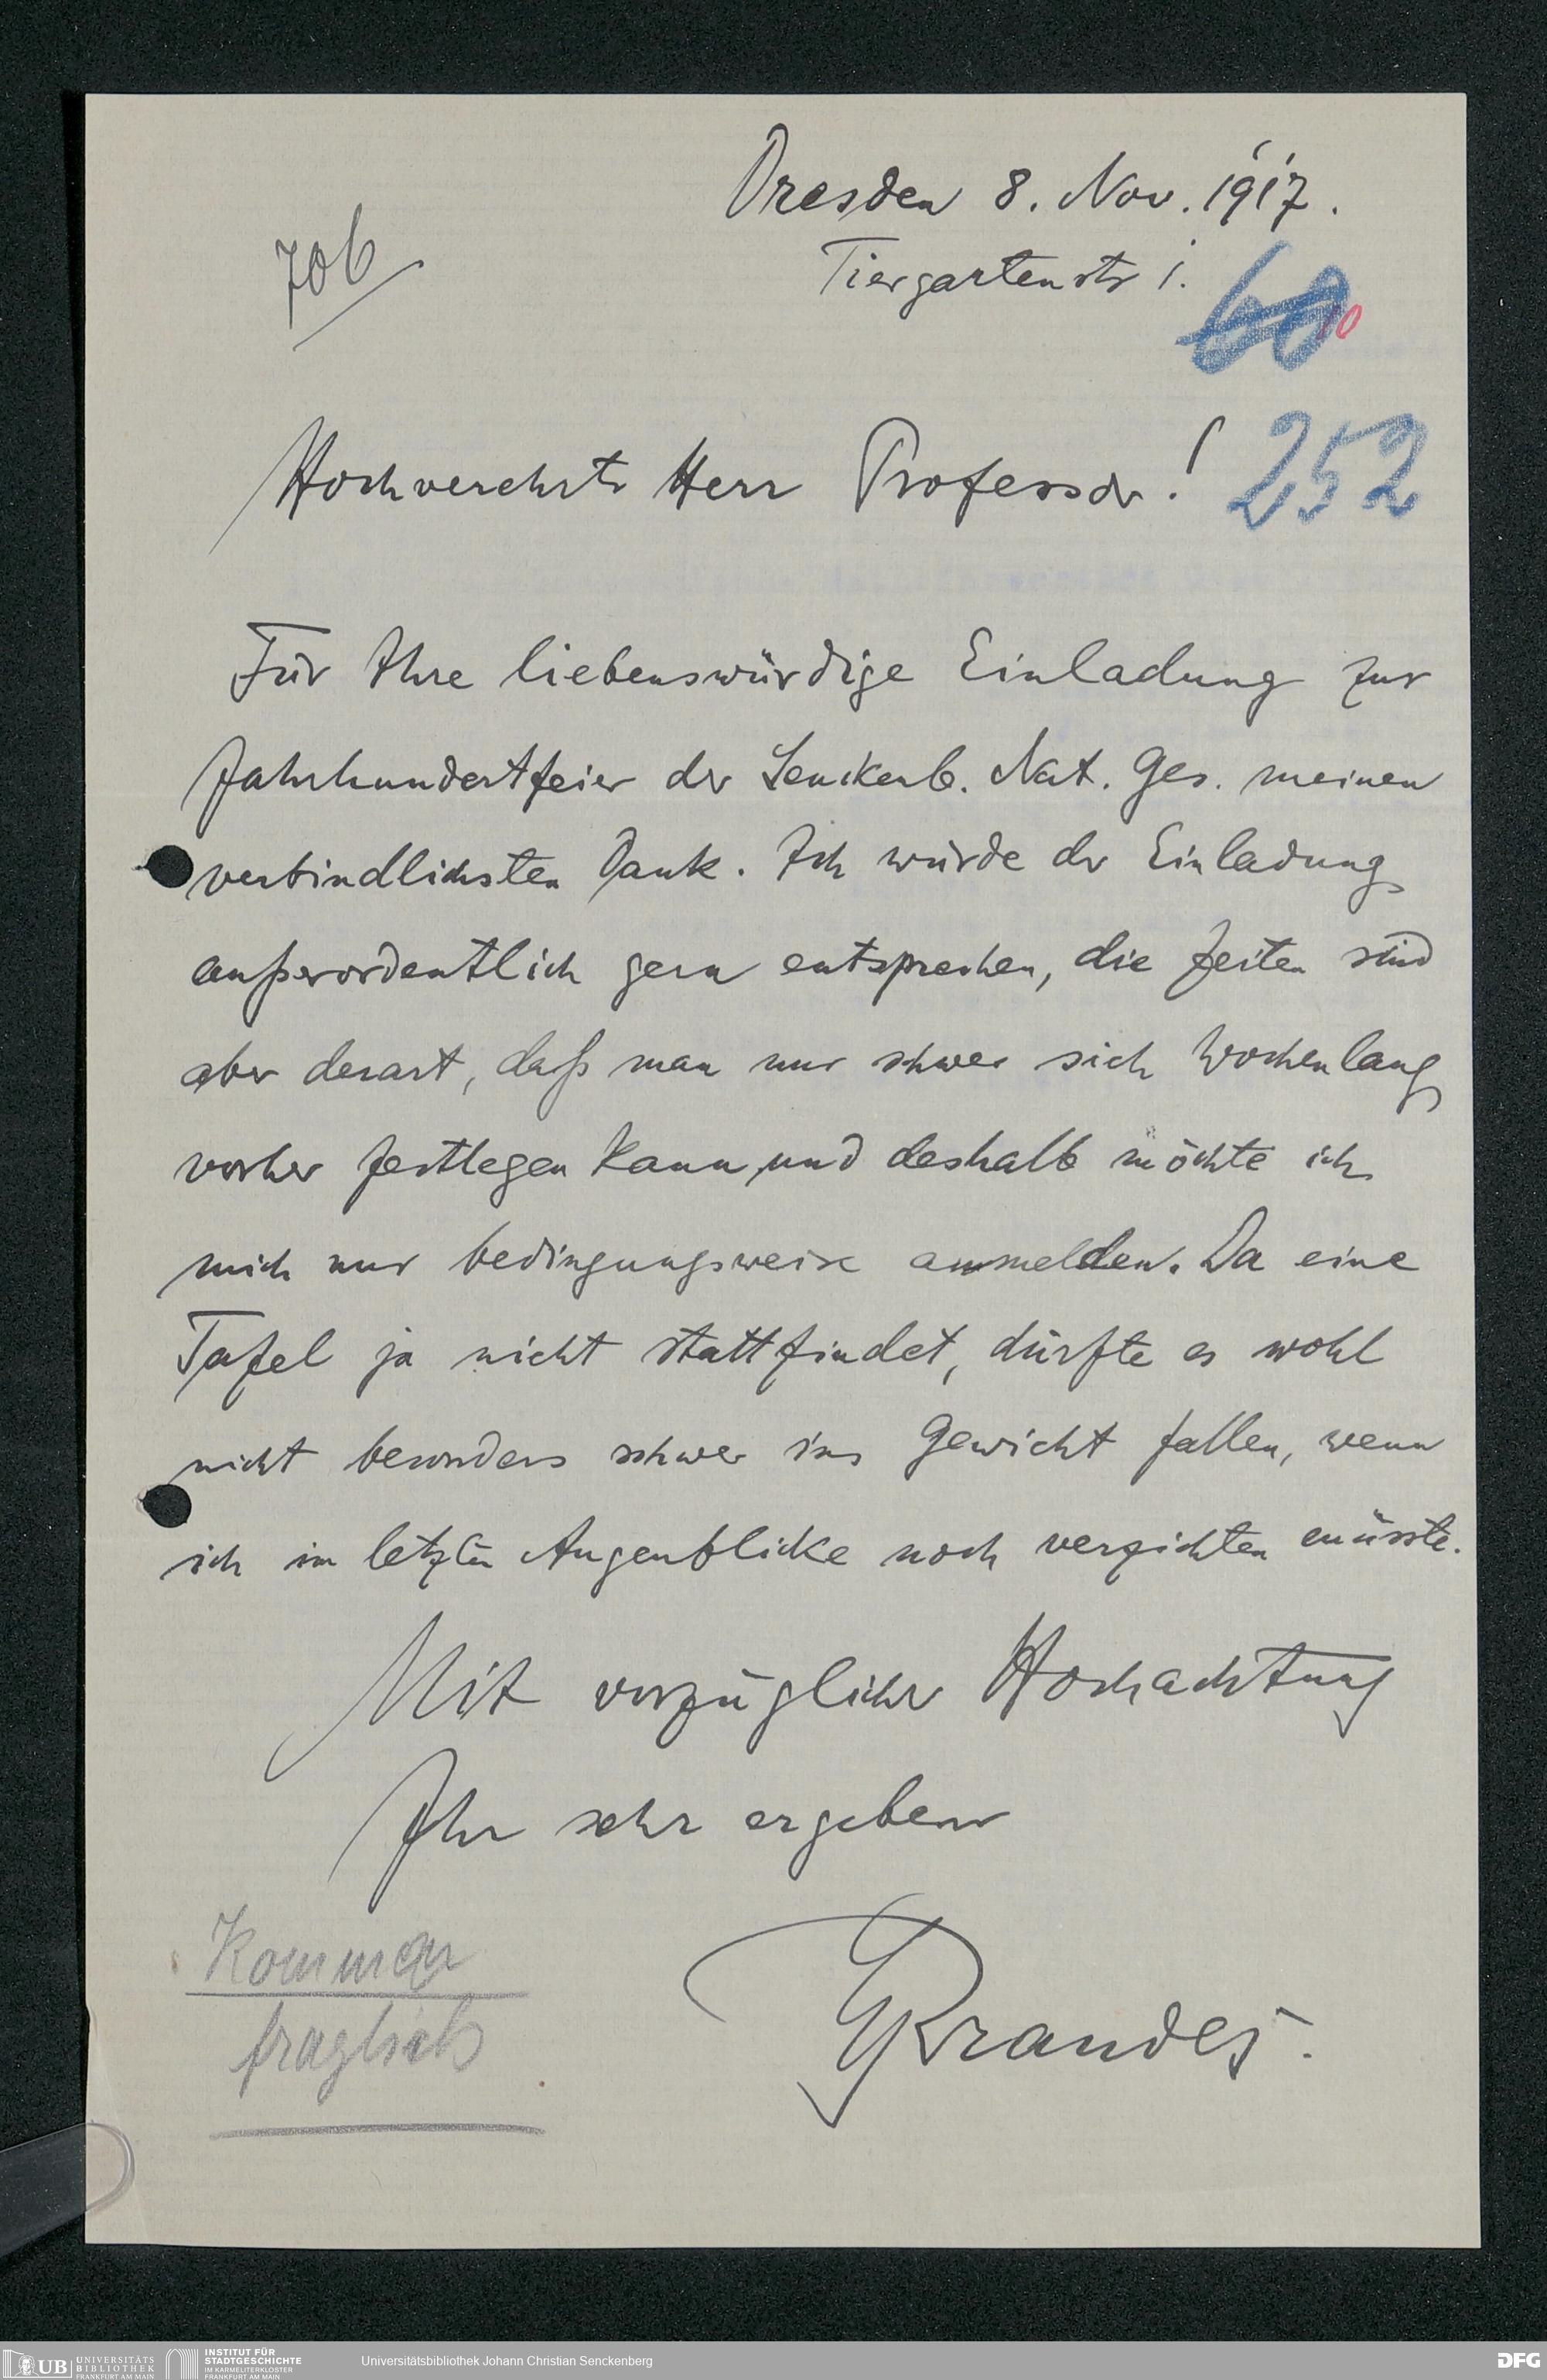 Dresden 8. Nov. 1917.
Tiergartenstr 1.
706
60
10
Hochverehrter Herr Professor!
252
Für Ihre liebenswürdige Einladung zur
Jahrhundertfeier der Senckenb. Nat. Ges. meinen
verbindlichsten Dank. Ich würde der Einladung
außerordentlich gern entsprechen, die Zeiten sind
aber derart, daß man nur schwer sich wochenlang
vorher festlegen kann, und deshalb möchte ich
mich nur bedingungsweise anmelden. Da eine
Tafel ja nicht stattfindet, dürfte es wohl
nicht besonders schwer ins Gewicht fallen, wenn
ich im letzten Augenblicke noch verzichten müsste.
Mit vorzüglicher Hochachtung
Ihr sehr ergebener
GBrandes.
Kommen
fraglich
UB UNIVERSITÄTS
BIBLIOTHEK
FRANKFURT AM MAIN
INSTITUT FÜR
STADTGESCHICHTE
IM KARMELITERKLOSTER
FRANKFURT AM MAIN
Universitätsbibliothek Johann Christian Senckenberg
DFG